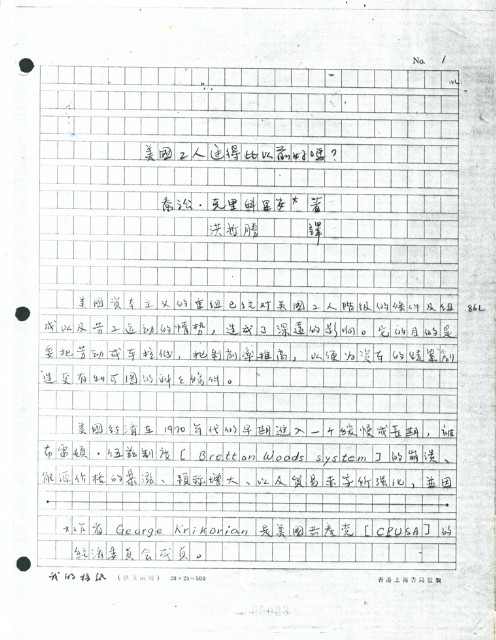 No. 1
美國工人过得比以前好嗎?
喬治·克里科里安 著
洪哲勝 譯
美國資本主义的重組已经对美國工人階級的條件及組
成以及劳工运动的情势,造成了深遠的影响。它的目的是
要把劳动成本拉低,把剝削率推高,以便为资本的積累創
造更有利可圖的條件。
美國经濟在1970年代的早期進入一个缓慢成長期,被
布雷頓·伍茲制度[Bretton Woods system]的崩潰、
能源价格的暴漲、預祘增大、以及貿易赤字所強化,並因
*作者 George Krikorian 是美國共產党[CPUSA]的
经濟委員会成員。
我的稿纸 24×25=600
香港上海書局監製